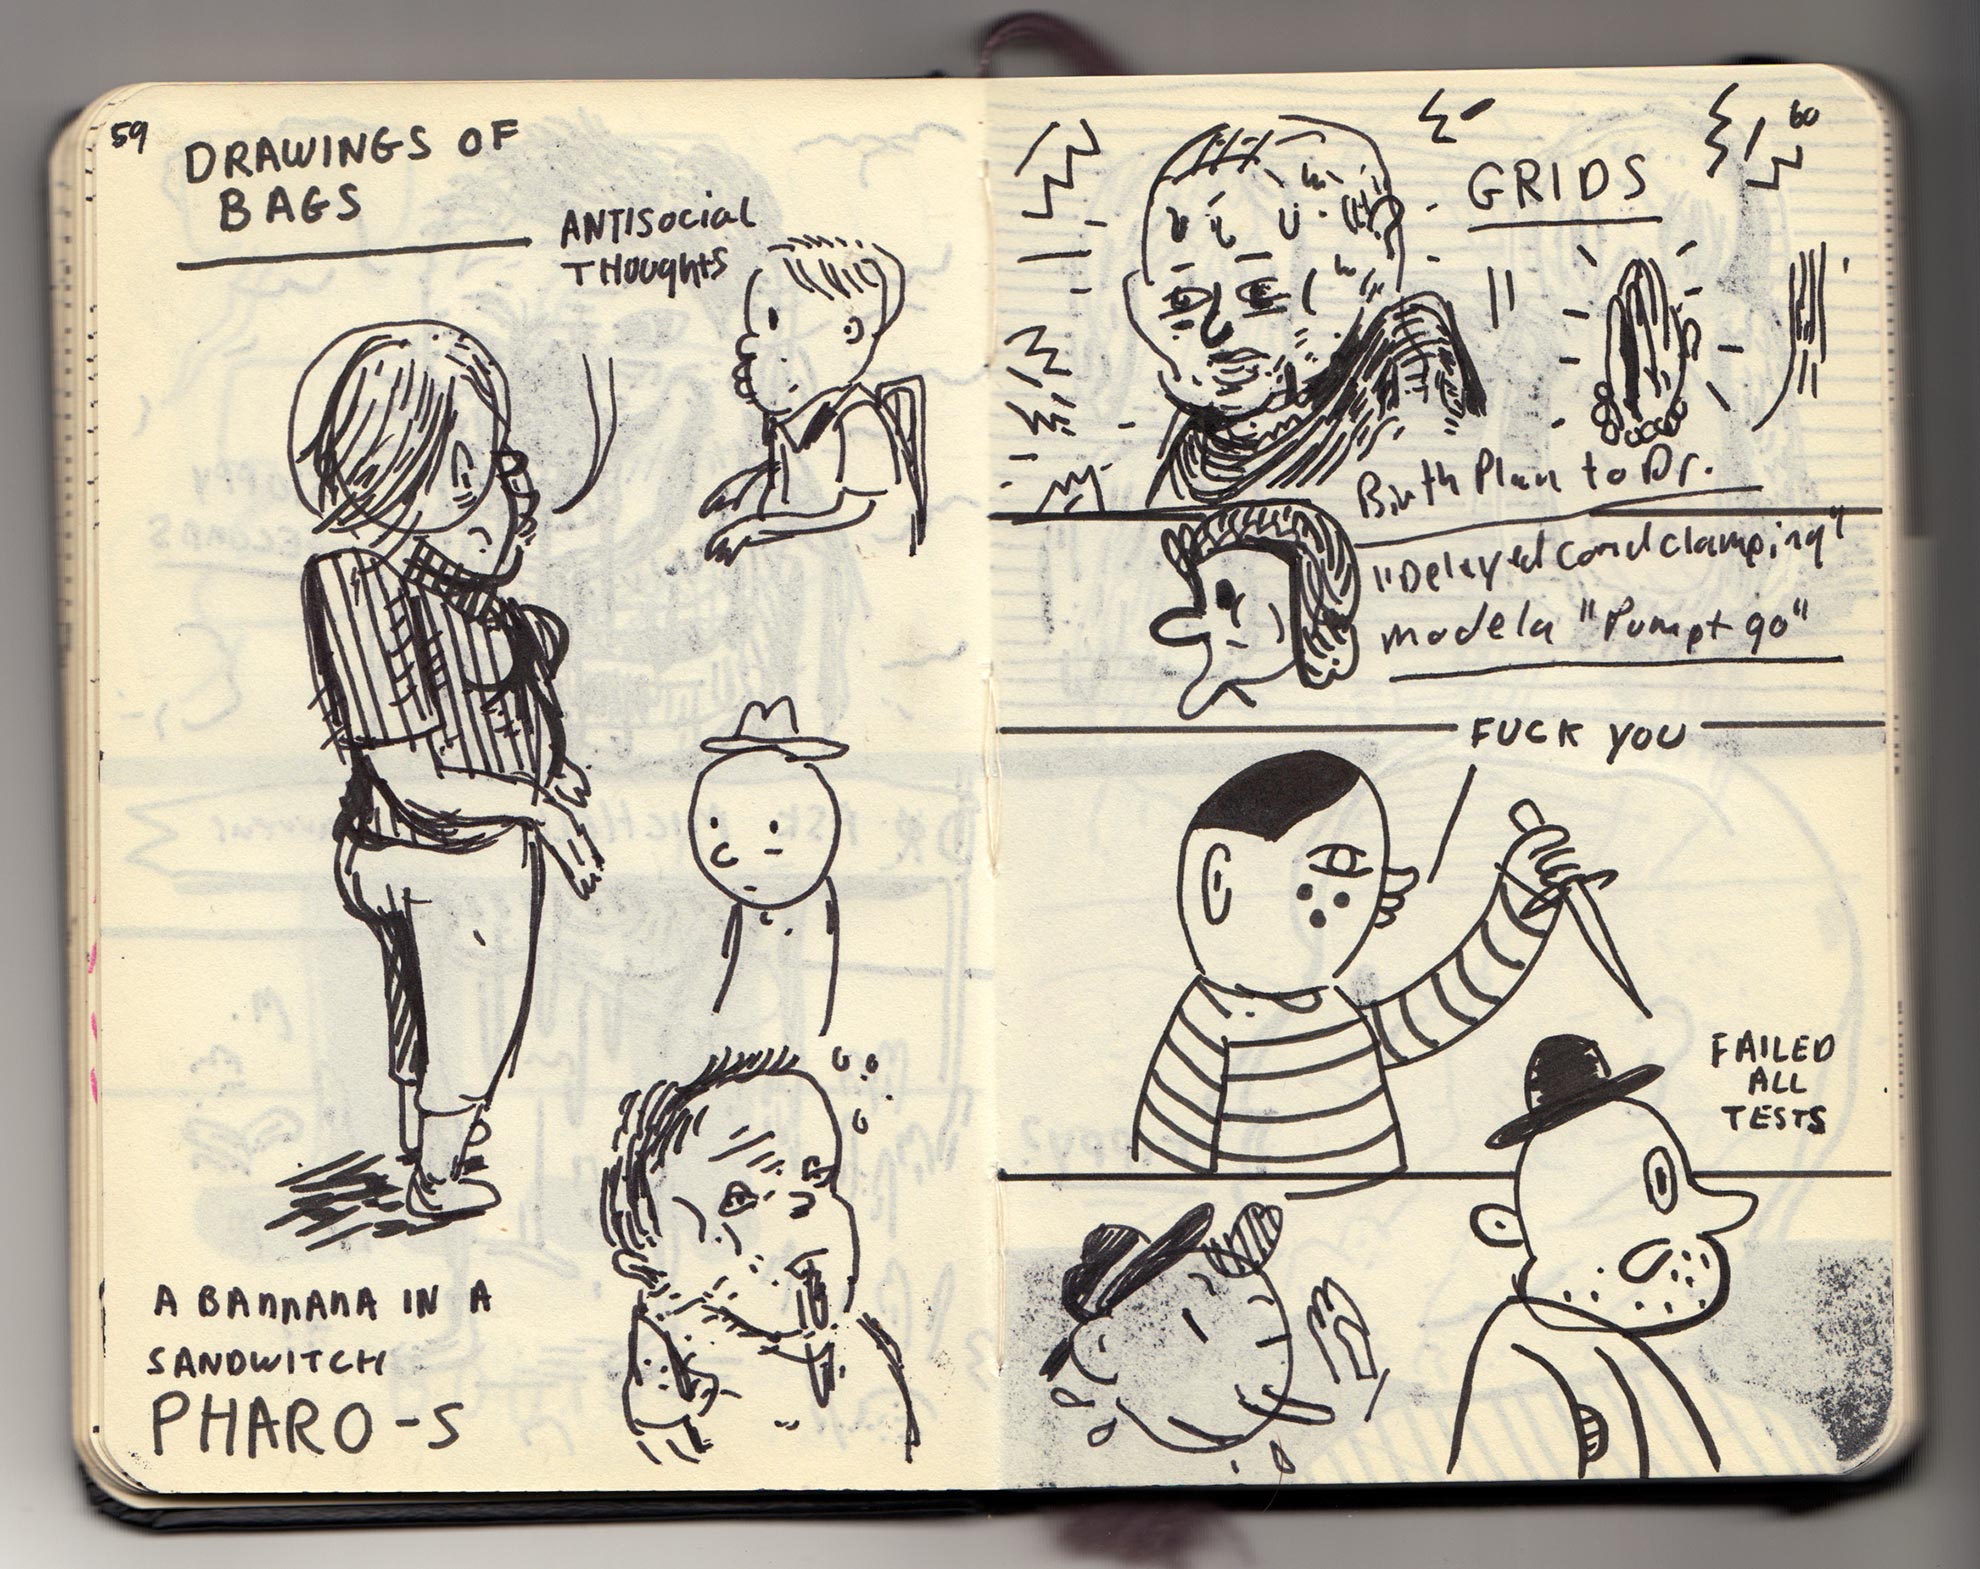 59
DRAWINGS OF
BAGS
ANTISocial
THOUghtS
A BAnnAnA IN A
SANDWITCH
PHARO-S
60
GRIDS
Birth Plan to Dr.
"Delayed Cord clamping"
mode la "Pump t go"
FUCK YOU
FAILED
ALL
TESTS